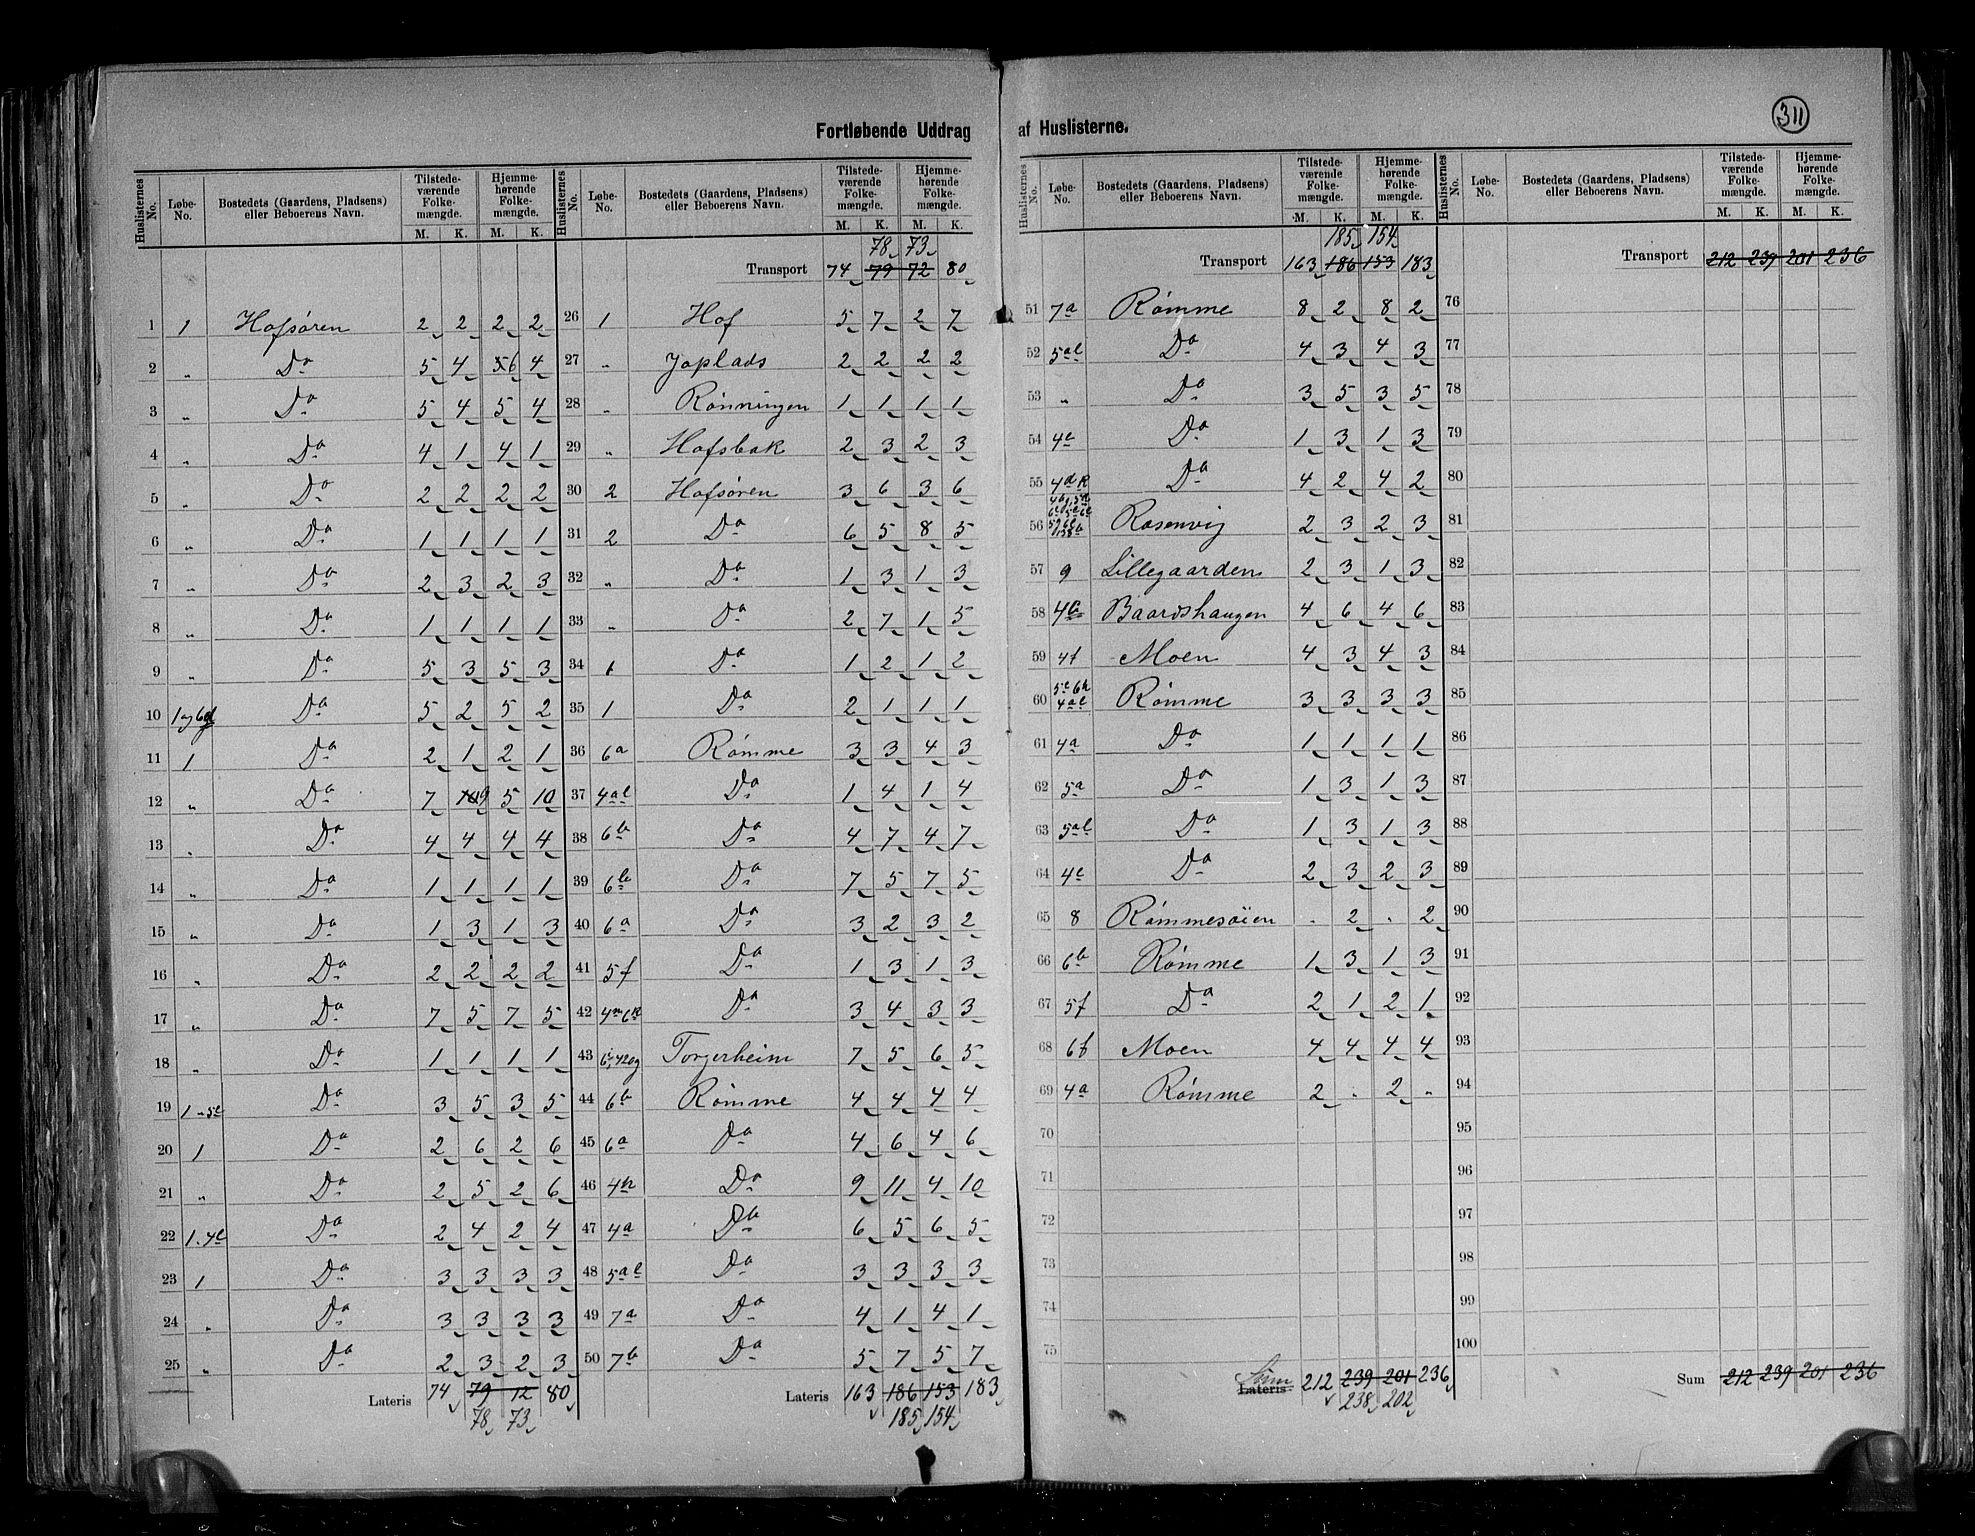 Fortløbende Uddrag af Huslisterne.
311
Huslisternes No. | Løbe-No. | Bostedets (Gaardens, Pladsens) eller Beboerens Navn. | Tilstedeværende Folkemængde. M. K. | Hjemmehørende Folkemængde. M. K.
1 1 Hofsøren 2 2 2 2
2 " Do 5 4 5 6 4
3 " Do 5 4 5 4
4 " Do 4 1 4 1
5 " Do 2 2 2 2
6 " Do 1 1 1 1
7 " Do 2 3 2 3
8 " Do 1 1 1 1
9 " Do 5 3 5 3
10 1 og 6d Do 5 2 5 2
11 1 Do 2 1 2 1
12 " Do 7 10 9 5 10
13 " Do 4 4 4 4
14 " Do 1 1 1 1
15 " Do 1 3 1 3
16 " Do 2 2 2 2
17 " Do 7 5 7 5
18 " Do 1 1 1 1
19 1 " 5e Do 3 5 3 5
20 1 Do 2 6 2 6
21 " Do 2 5 2 6
22 1.4e Do 2 4 2 4
23 1 Do 3 3 3 3
24 " Do 3 3 3 3
25 " Do 2 3 2 3
Lateris 74 79 72 80
78 73
Huslisternes No. | Løbe-No. | Bostedets (Gaardens, Pladsens) eller Beboerens Navn. | Tilstedeværende Folkemængde. M. K. | Hjemmehørende Folkemængde. M. K.
78 73
Transport 74 79 72 80
26 1 Hof 5 7 2 7
27 " Joplads 2 2 2 2
28 " Rønningen 1 1 1 1
29 " Hofsbak 2 3 2 3
30 2 Hofsøren 3 6 3 6
31 2 Do 6 5 8 5
32 " Do 1 3 1 3
33 " Do 2 7 1 5
34 1 Do 1 2 1 2
35 1 Do 2 1 1 1
36 6a Rømme 3 3 4 3
37 4al Do 1 4 1 4
38 6b Do 4 7 4 7
39 Do 7 5 7 5
40 6a Do 3 2 3 2
41 5f Do 1 3 1 3
42 Do 3 4 3 3
43 Torgerheim 7 5 6 5
44 6b Rømme 4 4 4 4
45 6a Do 4 6 4 6
46 4h Do 9 11 4 10
47 4a Do 6 5 6 5
48 5al Do 3 3 3 3
49 7a Do 4 1 4 1
50 7b Do 5 7 5 7
Lateris 163 186 153 183
185 154
Huslisternes No. | Løbe-No. | Bostedets (Gaardens, Pladsens) eller Beboerens Navn. | Tilstedeværende Folkemængde. M. K. | Hjemmehørende Folkemængde. M. K.
185 154
Transport 163 186 153 183
51 7a Rømme 8 2 8 2
52 5al Do 4 3 4 3
53 " Do 3 5 3 5
54 4e Do 1 3 1 3
55 4d Do 4 2 4 2
56 Rosenvig 2 3 2 3
57 9 Lillegaarden 2 3 1 3
58 Baardshaugen 4 6 4 6
59 4f Moen 4 3 4 3
60 Rømme 3 3 3 3
61 4a Do 1 1 1 1
62 5a Do 1 3 1 3
63 5al Do 1 3 1 3
64 4e Do 2 3 2 3
65 8 Rømmesøien - 2 - 2
66 6b Rømme 1 3 1 3
67 5f Do 2 1 2 1
68 6f Moen 4 4 4 4
69 4a Rømme 2 - 2 -
70
71
72
73
74
75
Sum Lateris 212 239 201 236
238 202
Huslisternes No. | Løbe-No. | Bostedets (Gaardens, Pladsens) eller Beboerens Navn. | Tilstedeværende Folkemængde. M. K. | Hjemmehørende Folkemængde. M. K.
Transport 212 239 201 236
76
77
78
79
80
81
82
83
84
85
86
87
88
89
90
91
92
93
94
95
96
97
98
99
100
Sum 212 239 201 236